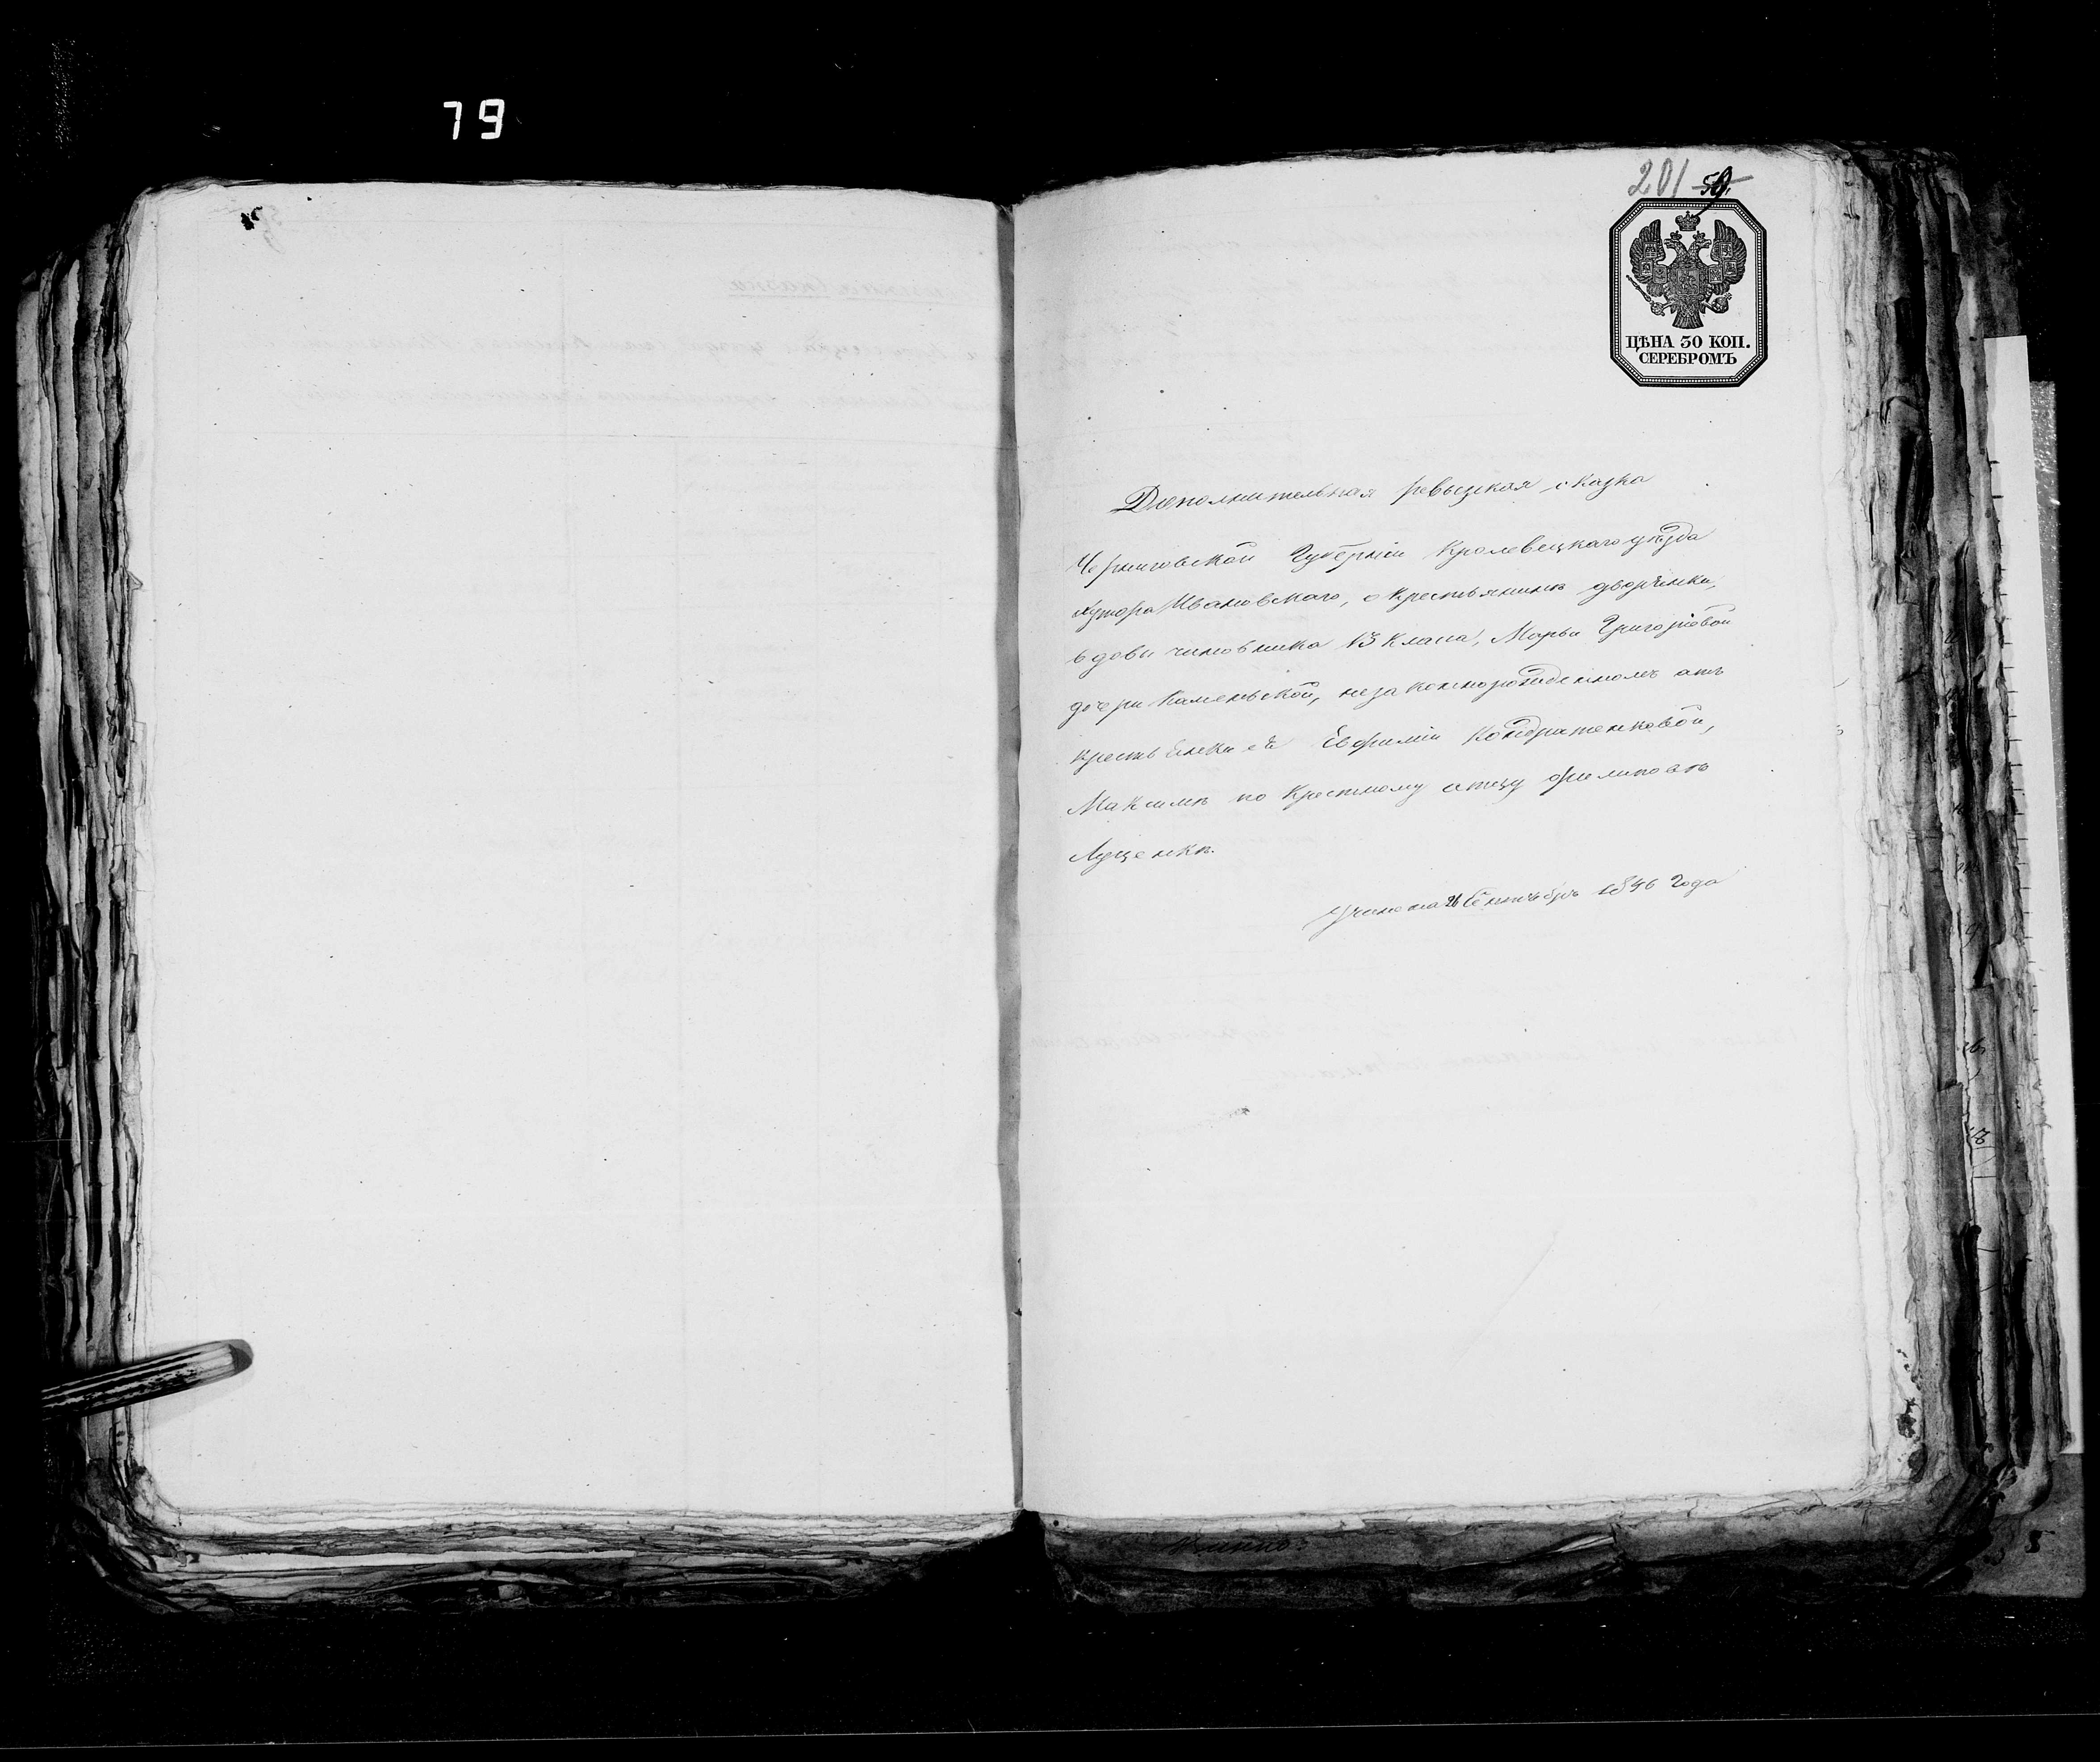 79
201 59.
ЦѢНА 30 КОП.
СЕРЕБРОМЪ
Дополнительная ревызкая сказка
Черниговской Губерніи Кролевецкаго уѣзда
хутора Ивановскаго, о крестьянинѣ дворянки,
вдовы чиновника 13 класа, Марьи Григорьевой
дочери Каменьской, незаконнорожденномъ отъ
крестьянки еѣ Евфиміи Кондратенковой,
Максимѣ по крестному отцу Филиповѣ
Луценкѣ.
Учинена 26 Сентября 1856 Года